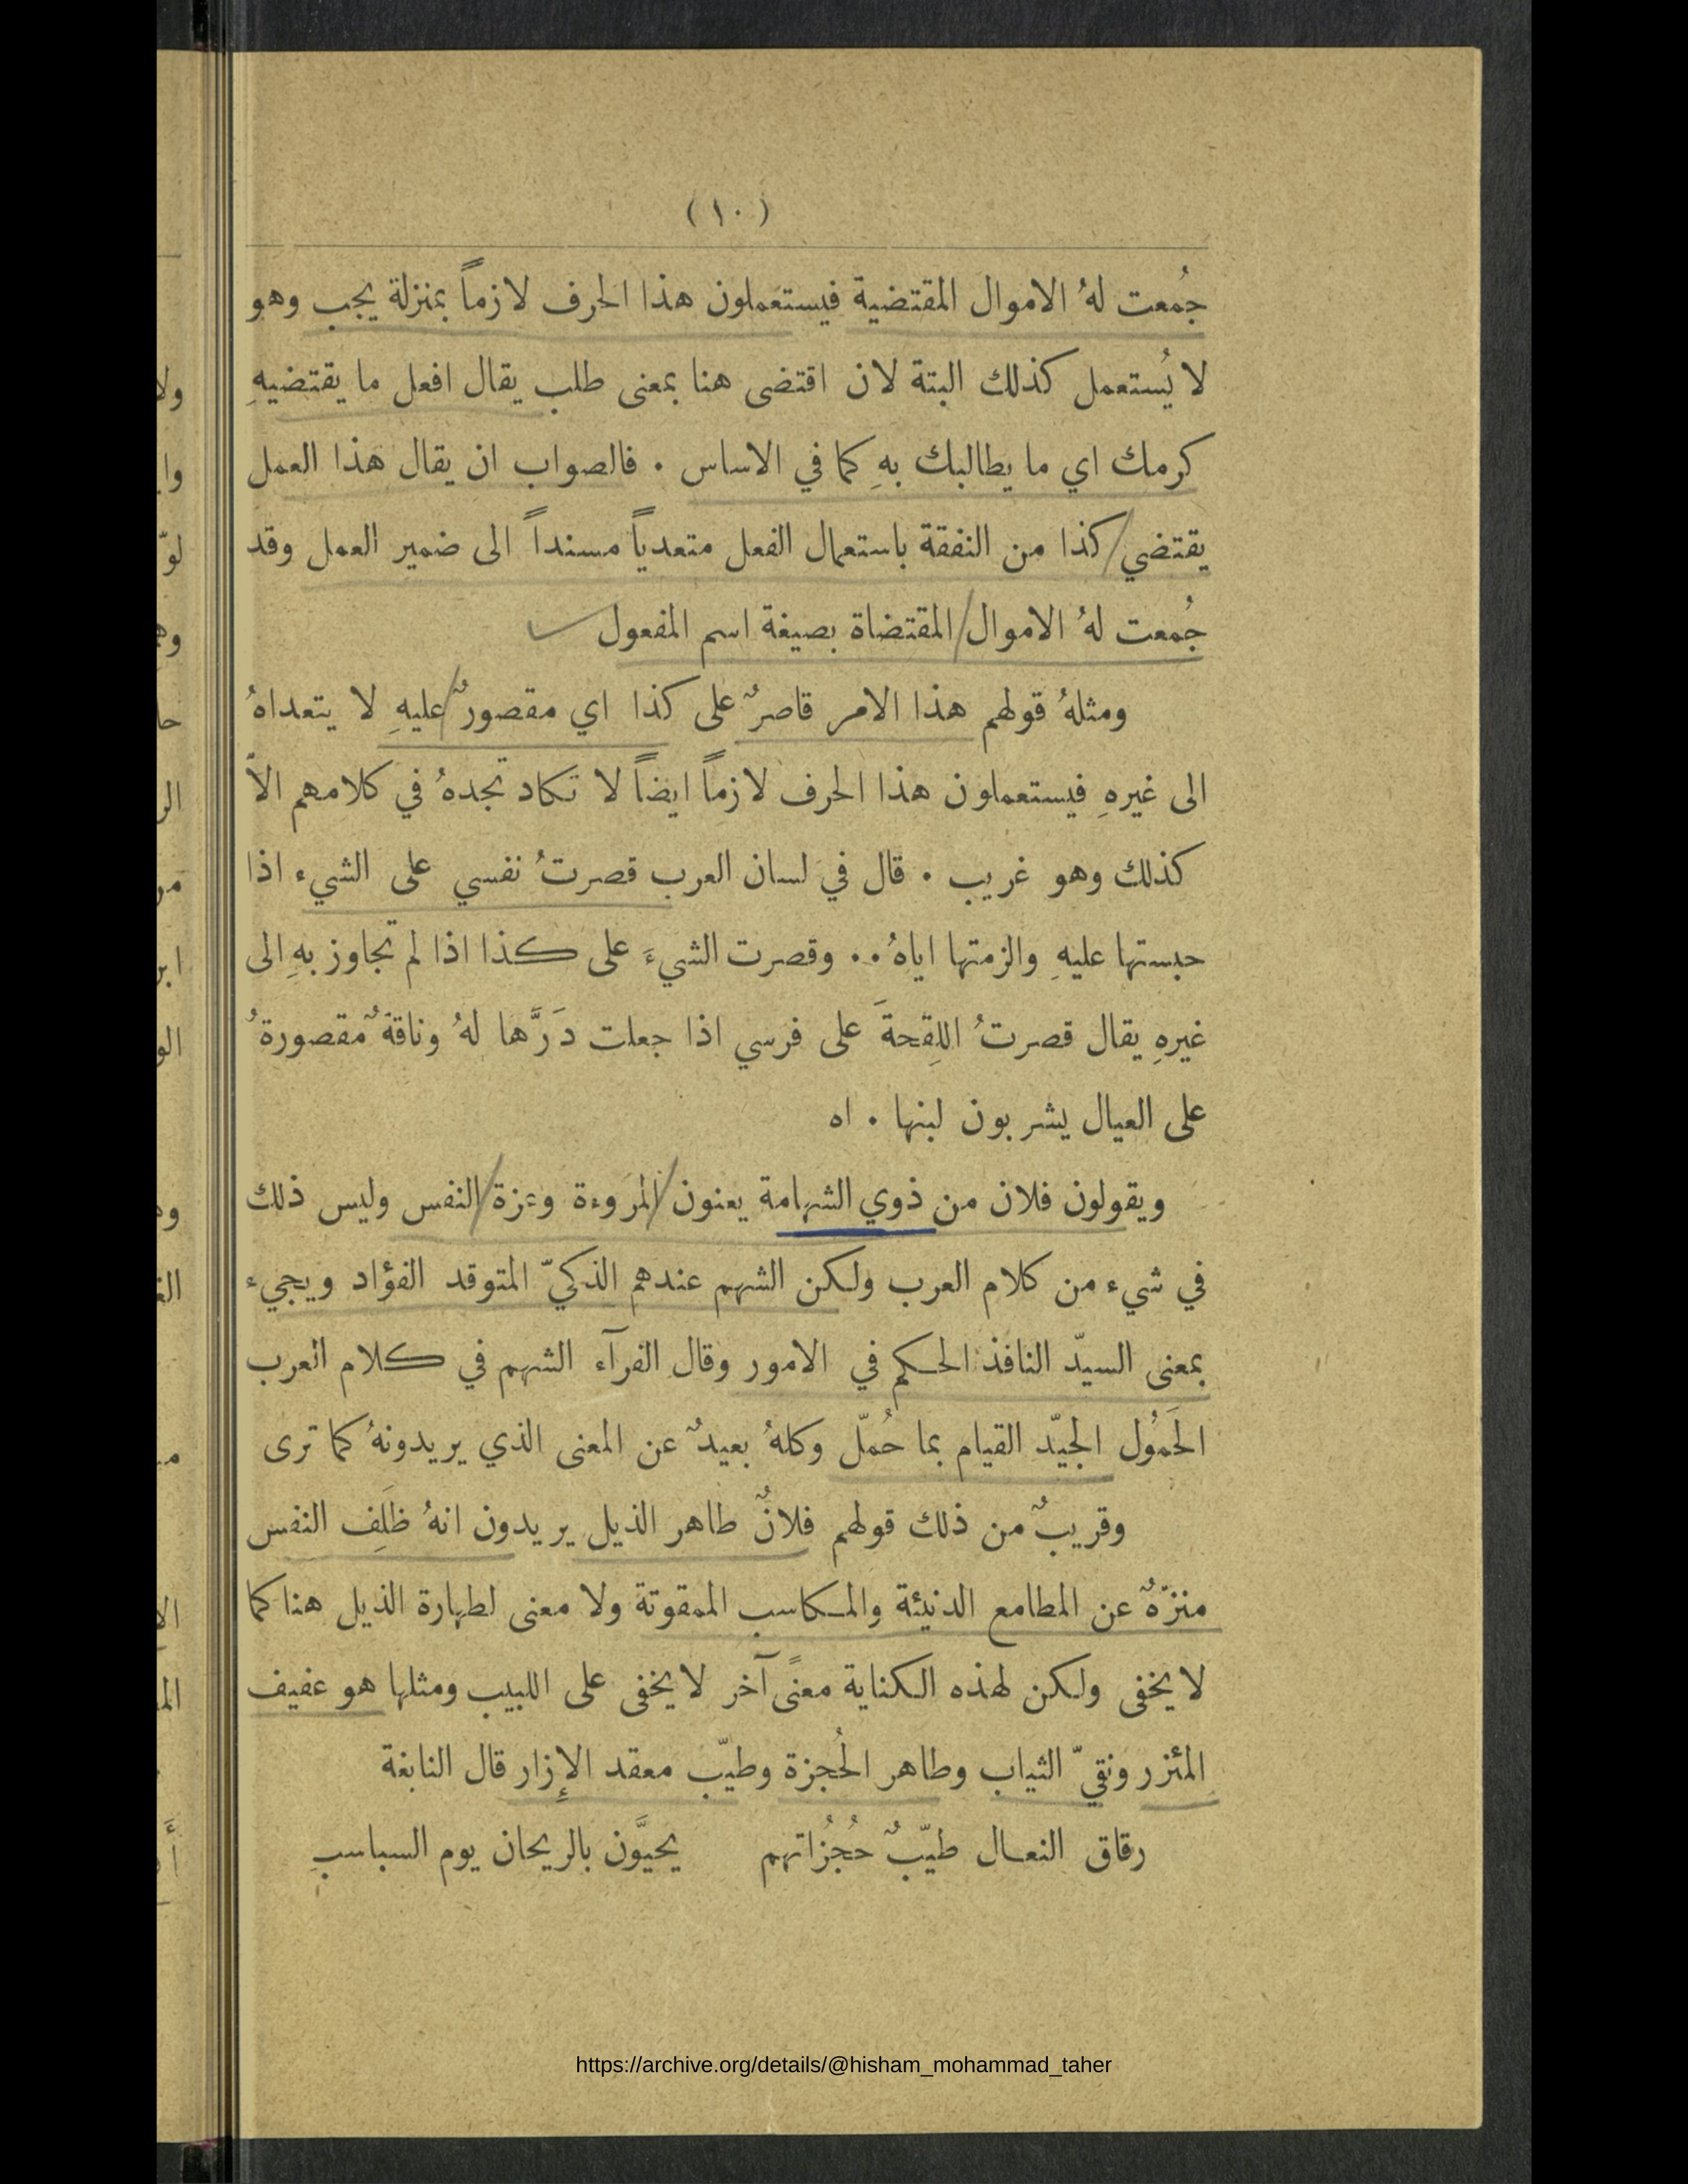 (١٠)
جُمعت لهُ الاموال المقتضية فيستعملون هذا الحرف لازماً بمنزلة يجب وهو
لا يُستعمل كذلك البتة لان اقتضى هنا بمعنى طلب يقال افعل ما يقتضيهِ
كرمك اي ما يطالبك بهِ كما في الاساس . فالصواب ان يقال هذا العمل
يقتضي كذا من النفقة باستعمال الفعل متعدياً مسنداً الى ضمير العمل وقد
جُمعت لهُ الاموال المقتضاة بصيغة اسم المفعول
ومثلهُ قولهم هذا الامر قاصرٌ على كذا اي مقصورٌ عليهِ لا يتعداهُ
الى غيرهِ فيستعملون هذا الحرف لازماً ايضاً لا تكاد تجدهُ في كلامهم الاّ
كذلك وهو غريب . قال في لسان العرب قصرتُ نفسي على الشيء اذا
حبستها عليهِ والزمتها اياهُ .. وقصرت الشيءَ على كذا اذا لم تجاوز بهِ الى
غيرهِ يقال قصرتُ اللِقحةَ على فرسي اذا جعلت دَرَّها لهُ وناقةٌ مقصورةٌ
على العيال يشربون لبنها . اه
ويقولون فلان من ذوي الشهامة يعنون المروءة وعزة النفس وليس ذلك
في شيء من كلام العرب ولكن الشهم عندهم الذكيّ المتوقد الفؤاد ويجيء
بمعنى السيّد النافذ الحكم في الامور وقال الفرآء الشهم في كلام العرب
الحَمُول الجيّد القيام بما حُمّل وكلهُ بعيدٌ عن المعنى الذي يريدونهُ كما ترى
وقريبٌ من ذلك قولهم فلانٌ طاهر الذيل يريدون انهُ ظَلِف النفس
منزّهٌ عن المطامع الدنيئة والمكاسب الممقوتة ولا معنى لطهارة الذيل هنا كما
لا يخفى ولكن لهذه الكناية معنًى آخر لا يخفى على اللبيب ومثلها هو عفيف
المئزر ونقيّ الثياب وطاهر الحُجزة وطيّب معقد الإزار قال النابغة
رقاق النعال طيّبٌ حُجُزاتهم يحيَّون بالريحان يوم السباسبِ
https://archive.org/details/@hisham_mohammad_taher